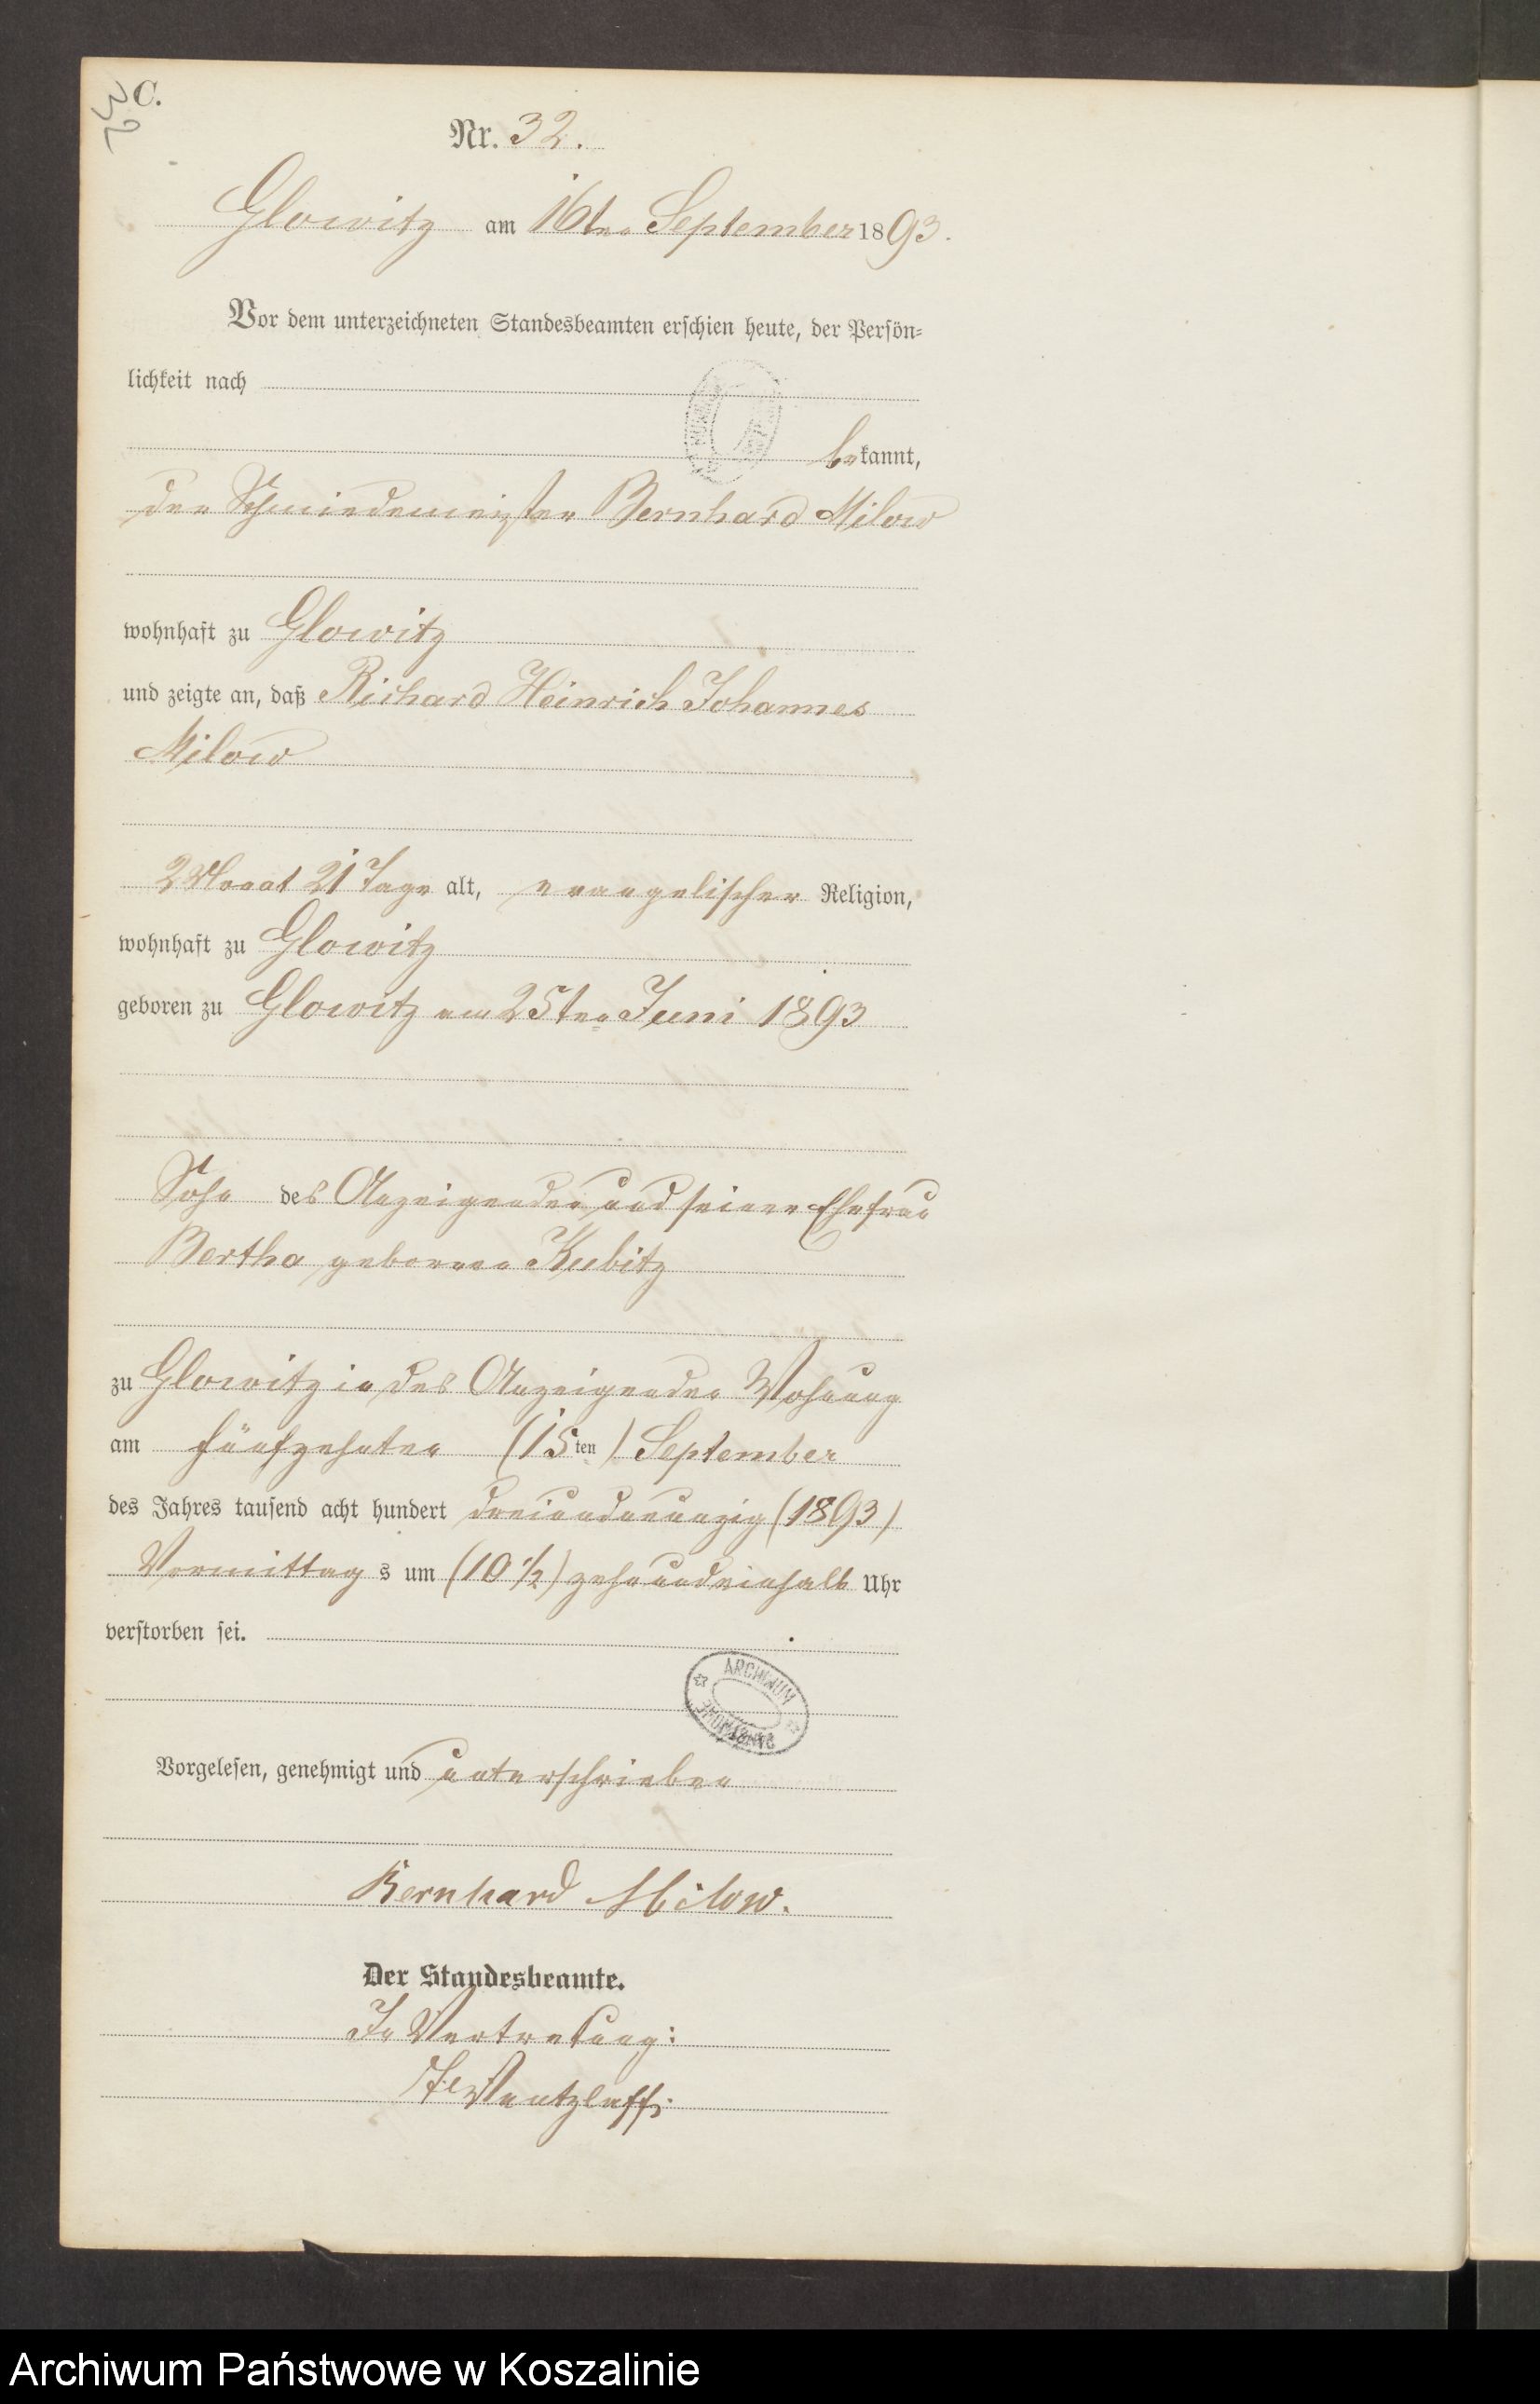 C.
32
Nr. 32.
Glowitz am 16ten September 1893.
Vor dem unterzeichneten Standesbeamten erschien heute, der Persön-
lichkeit nach
bekannt,
der Schmiedemeister Bernhard Milow
wohnhaft zu Glowitz
und zeigte an, daß Richard Heinrich Johannes
Milow
2 Monat 21 Tage alt, evangelischer Religion,
wohnhaft zu Glowitz
geboren zu Glowitz am 25ten Juni 1893
Sohn des Anzeigenden und seiner Ehefrau
Bertha geborenen Kubitz
zu Glowitz in des Anzeigenden Wohnung
am fünfzehnten (15ten) September
des Jahres tausend acht hundert dreiundneunzig (1893)
Vormittags um (10 1/2) zehnundeinhalb Uhr
verstorben sei.
ARCHIWUM
PAŃSTWOWE
Vorgelesen, genehmigt und unterschrieben
Bernhard Milow.
Der Standesbeamte.
In Vertretung:
Ventzlaff.
Archiwum Państwowe w Koszalinie